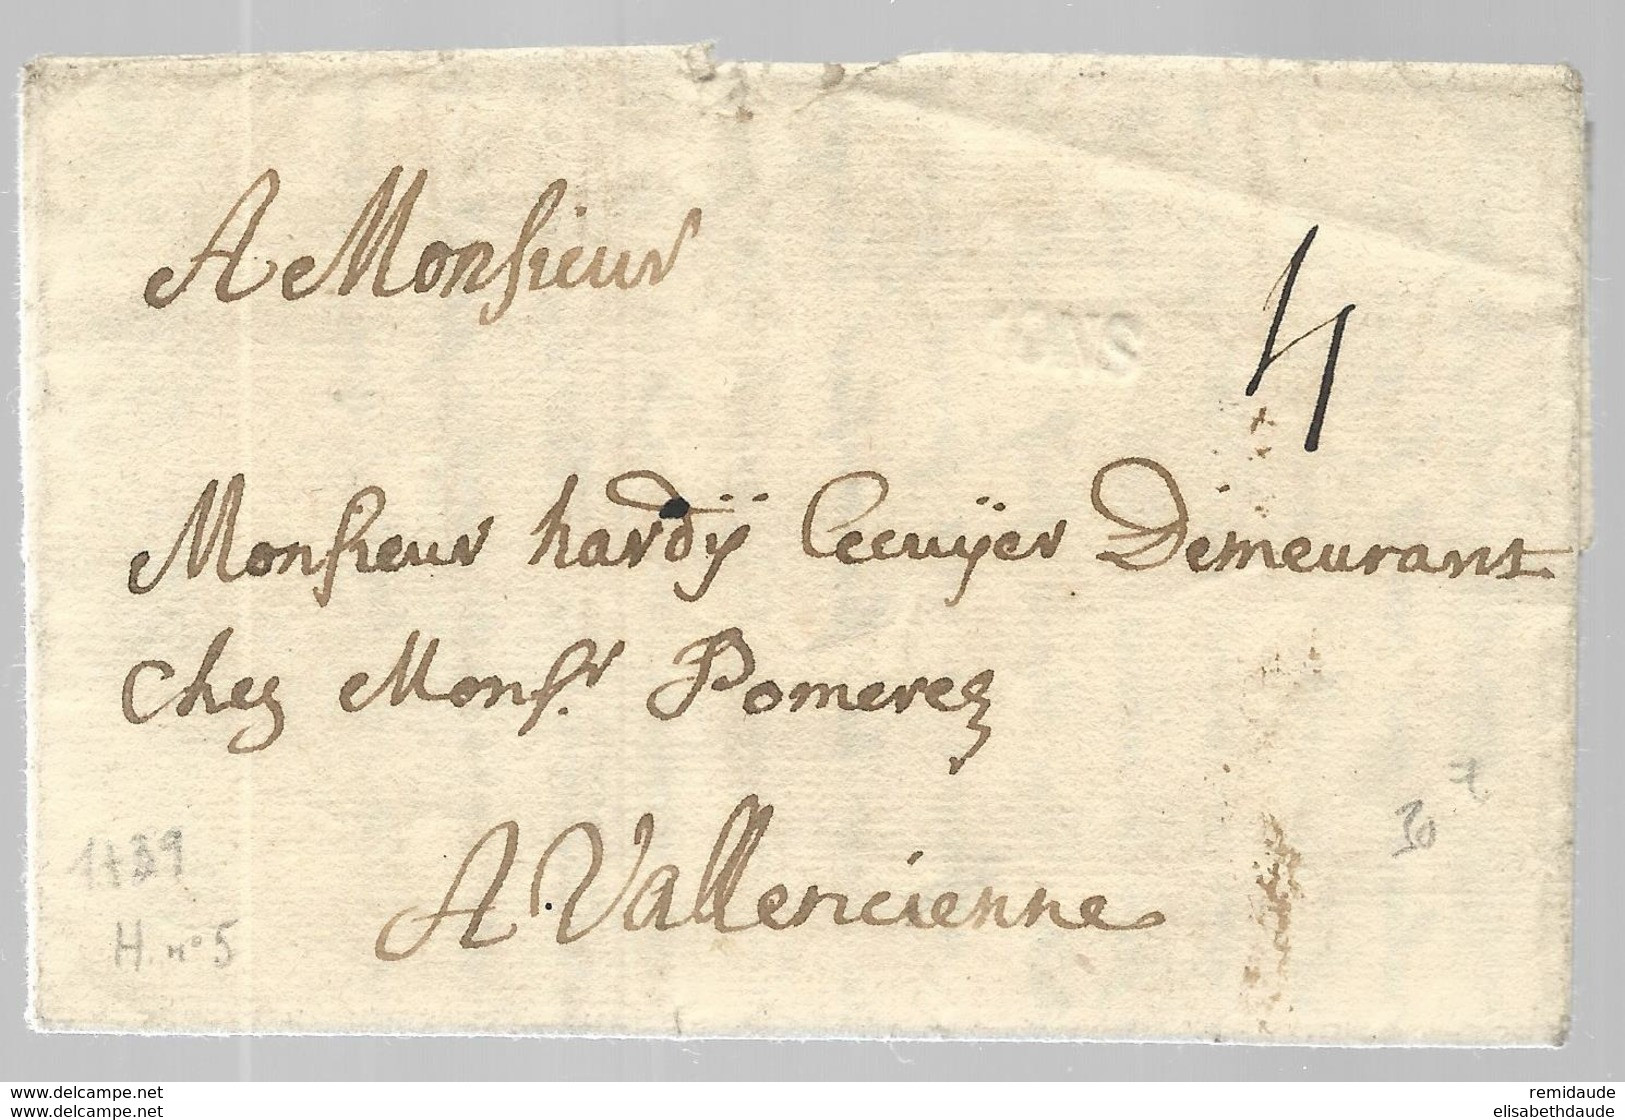 A Monsieur
4
Monsieur hardÿ Lecuÿer Demeurant
Chez Monsr. Pomerez
A Vallencienne
7
30
1739
H. n° 5
www.delcampe.net
www.delcampe.net
remidaude
elisabethdaude